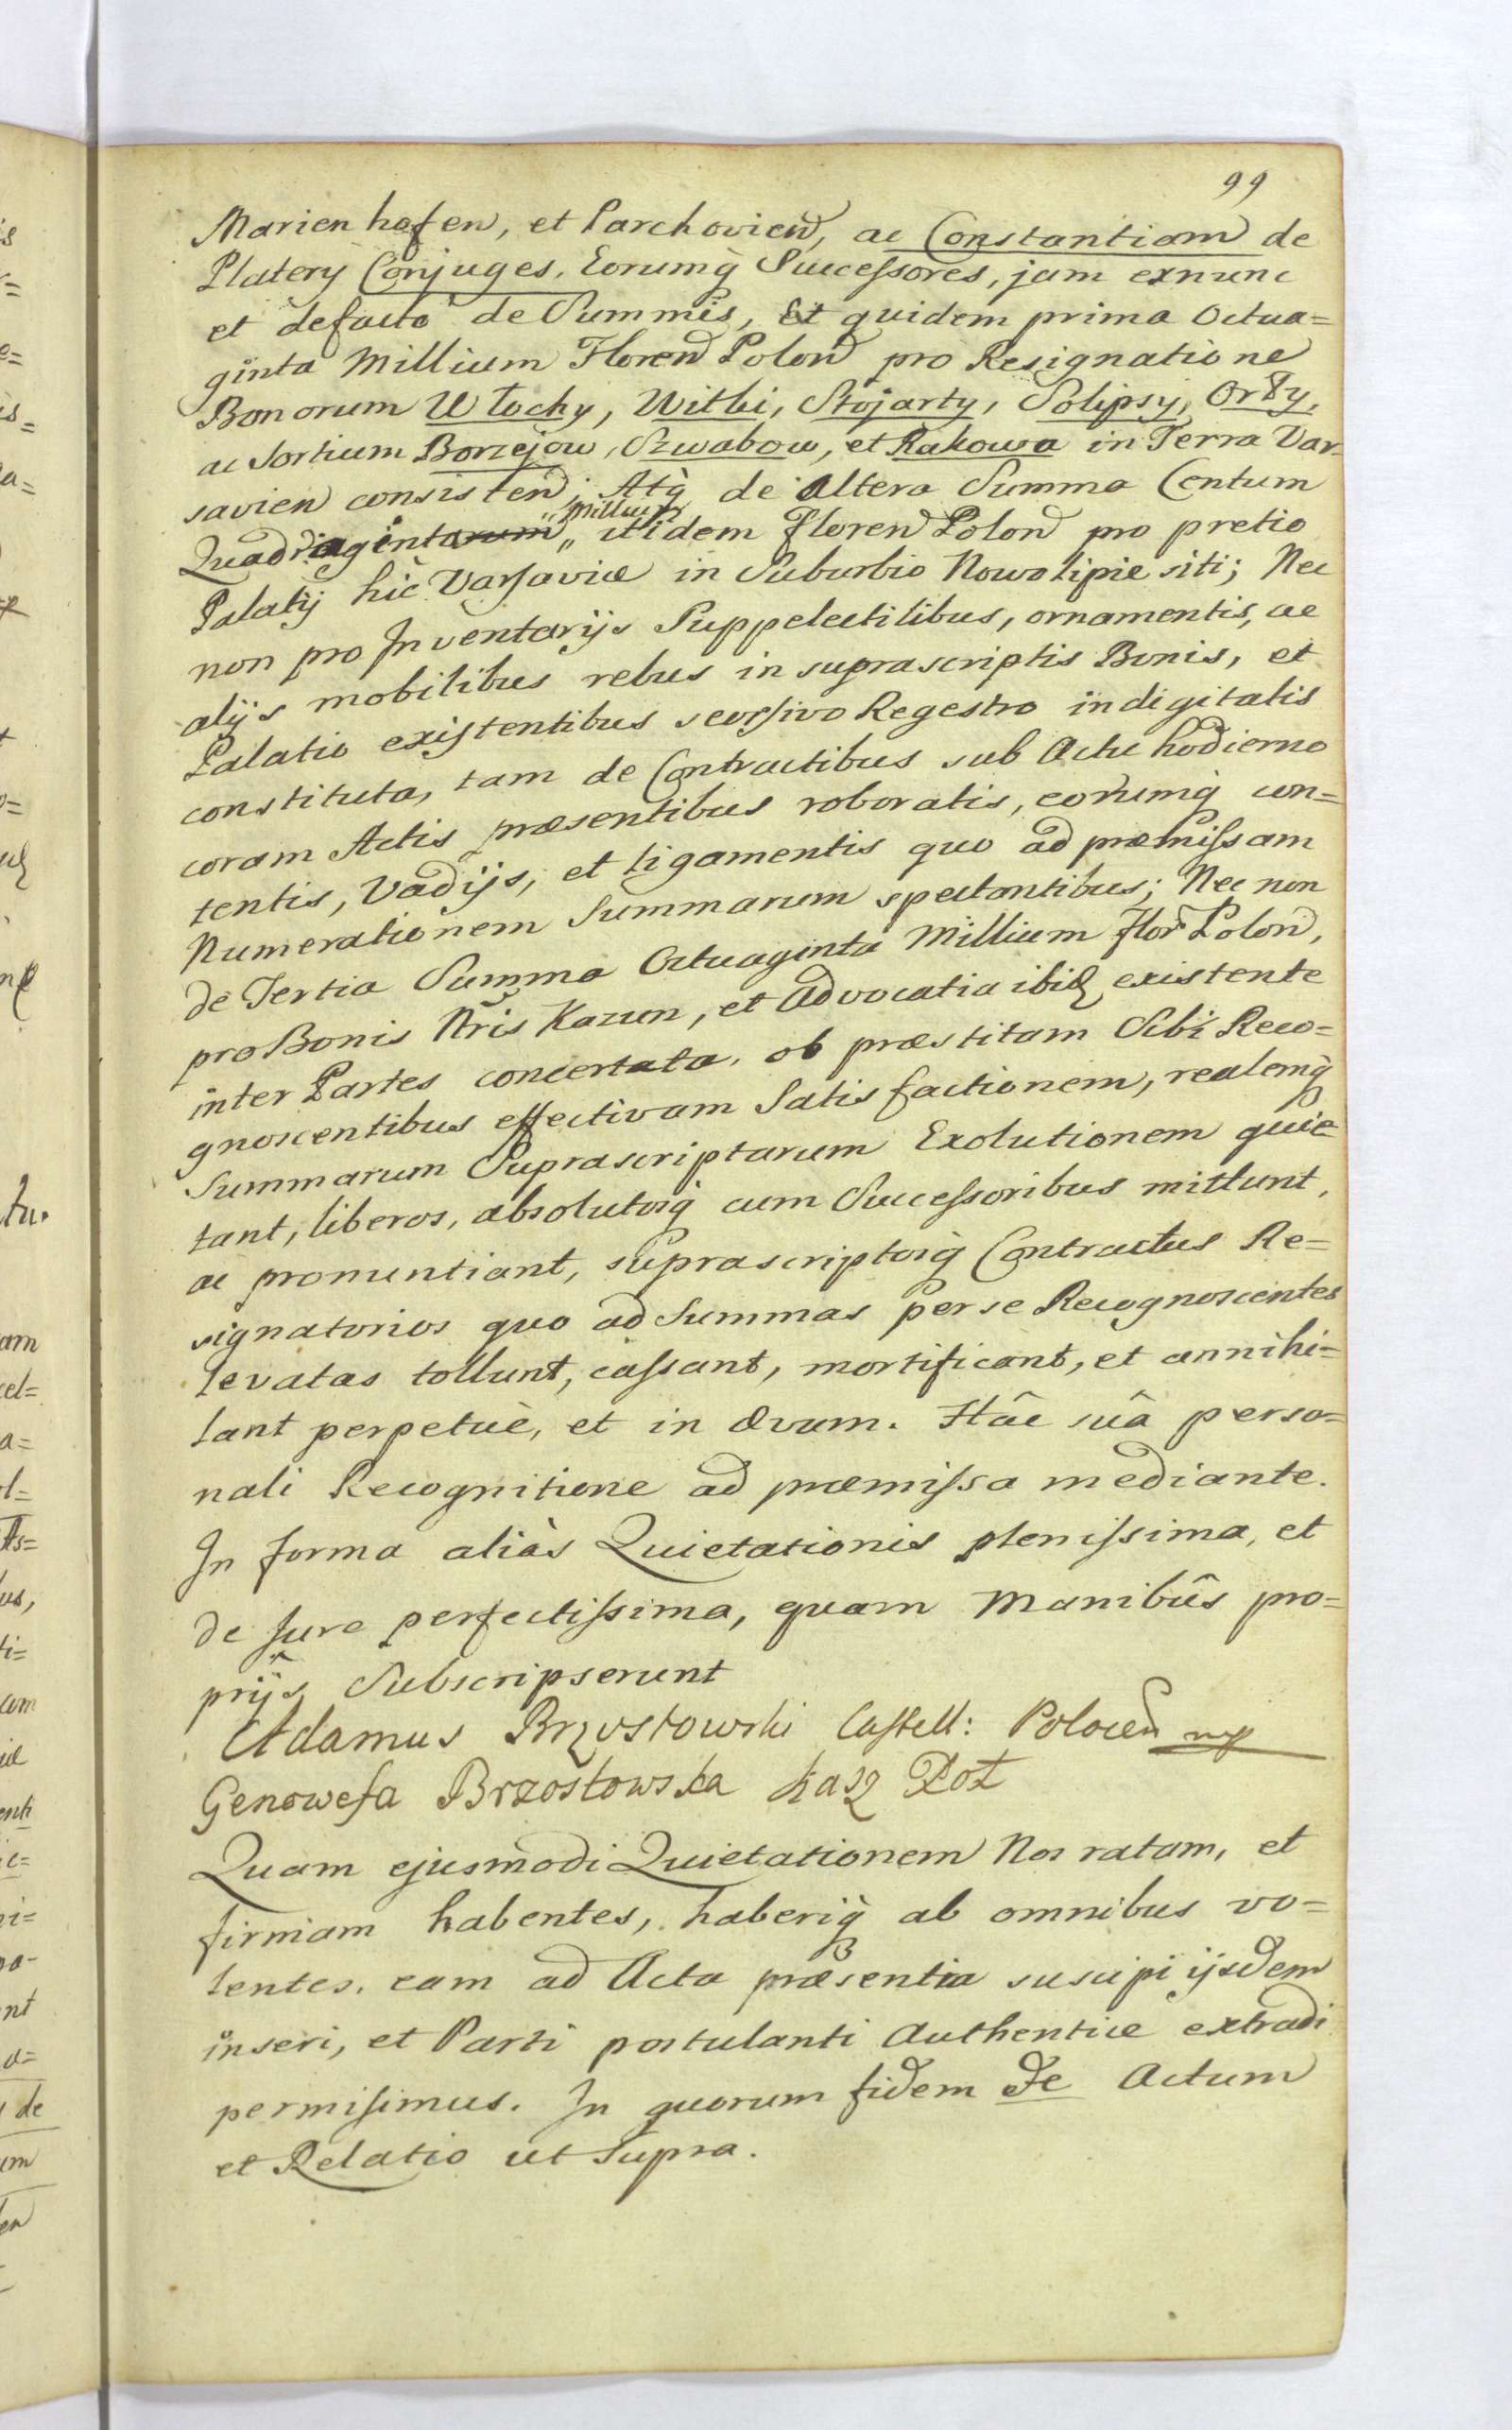 99
Marienhofen, et Parchovien, ac Constantiam de
Platery Conjuges, Eorumq̀ Successores, jam exnunc
et defacto de Summis, Et quidem prima Octua=
ginta Millium Floren Polon pro Resignatione
Bonorum Włochy, Witki, Stojarty, Solipsy, Orły,
ac Sortium Borzejow, Szwabow, et Rakowa in Terra Var=
savien consisten; Atq̀ de altera Summa Centum
Quadraginta „Millium„ itidem Floren Polon pro pretio
Palatij hic Varsaviæ in Suburbio Nowolipie siti; Nec
non pro Inventarijs Suppelectilibus, ornamentis, ac
alijs mobilibus rebus in suprascriptis Bonis, et
Palatio existentibus seorsivo Regestro indigitatis
constituta, tam de Contractibus sub Actu hodierno
coram Actis præsentibus roboratis, eorumq̀ con=
tentis, Vadijs, et ligamentis quo ad præmissam
Numerationem Summarum spectantibus; Nec non
de Tertia Summa Octuaginta Millium Flor Polon,
pro Bonis Nris Kazun, et Advocatia ibid existente
inter Partes concertata, ob præstitam Sibi Reco=
gnoscentibus effectivam Satisfactionem, realemq̀
Summarum Suprascriptarum Exolutionem quie=
tant, liberos, absolutosq̀ cum Successoribus mittunt,
ac pronuntiant, suprascriptosq̀ Contractus Re=
signatorios quo ad Summas per se Recognoscentes
levatas tollunt, cassant, mortificant, et annihi=
lant perpetuè, et in ævum. Hâc suâ perso=
nali Recognitione ad præmissa mediante.
In forma aliàs Quietationis plenissima, et
de Jure perfectissima, quam Manibûs pro=
prijs Subscripserunt
Adamus Brzostowski Castell: Polocen mp
Genowefa Brzostowska Kasz Poł
Quam ejusmodi Quietationem Nos ratam, et
firmam habentes, haberiq̀ ab omnibus vo=
lentes, eam ad Acta præsentia suscipi ijsdem
inseri, et Parti postulanti Authentice extradi
permisimus. In quorum fidem &c Actum
et Relatio ut Supra.